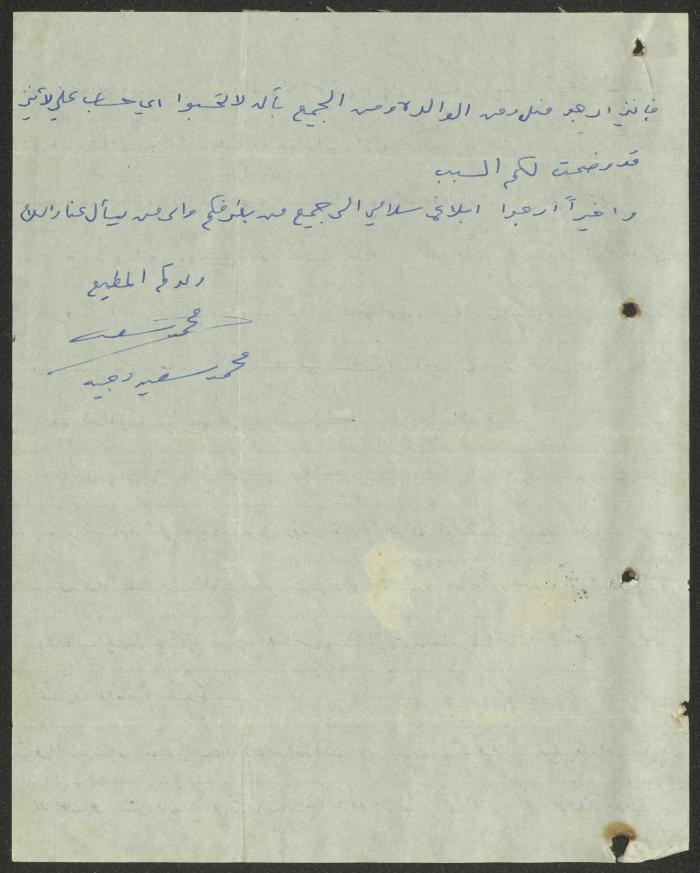 فإنني ارجو منك ومن الوالدة ومن الجميع بأن لا تحسبوا اي حساب علي لأنني
قد وضحت لكم السبب
واخيراً ارجوا ابلاغ سلامي الى جميع من بطرفكم والى من يسأل عنا ودمتم
ولدكم المطيع
محمد سعيد
محمد سعيد وجيه